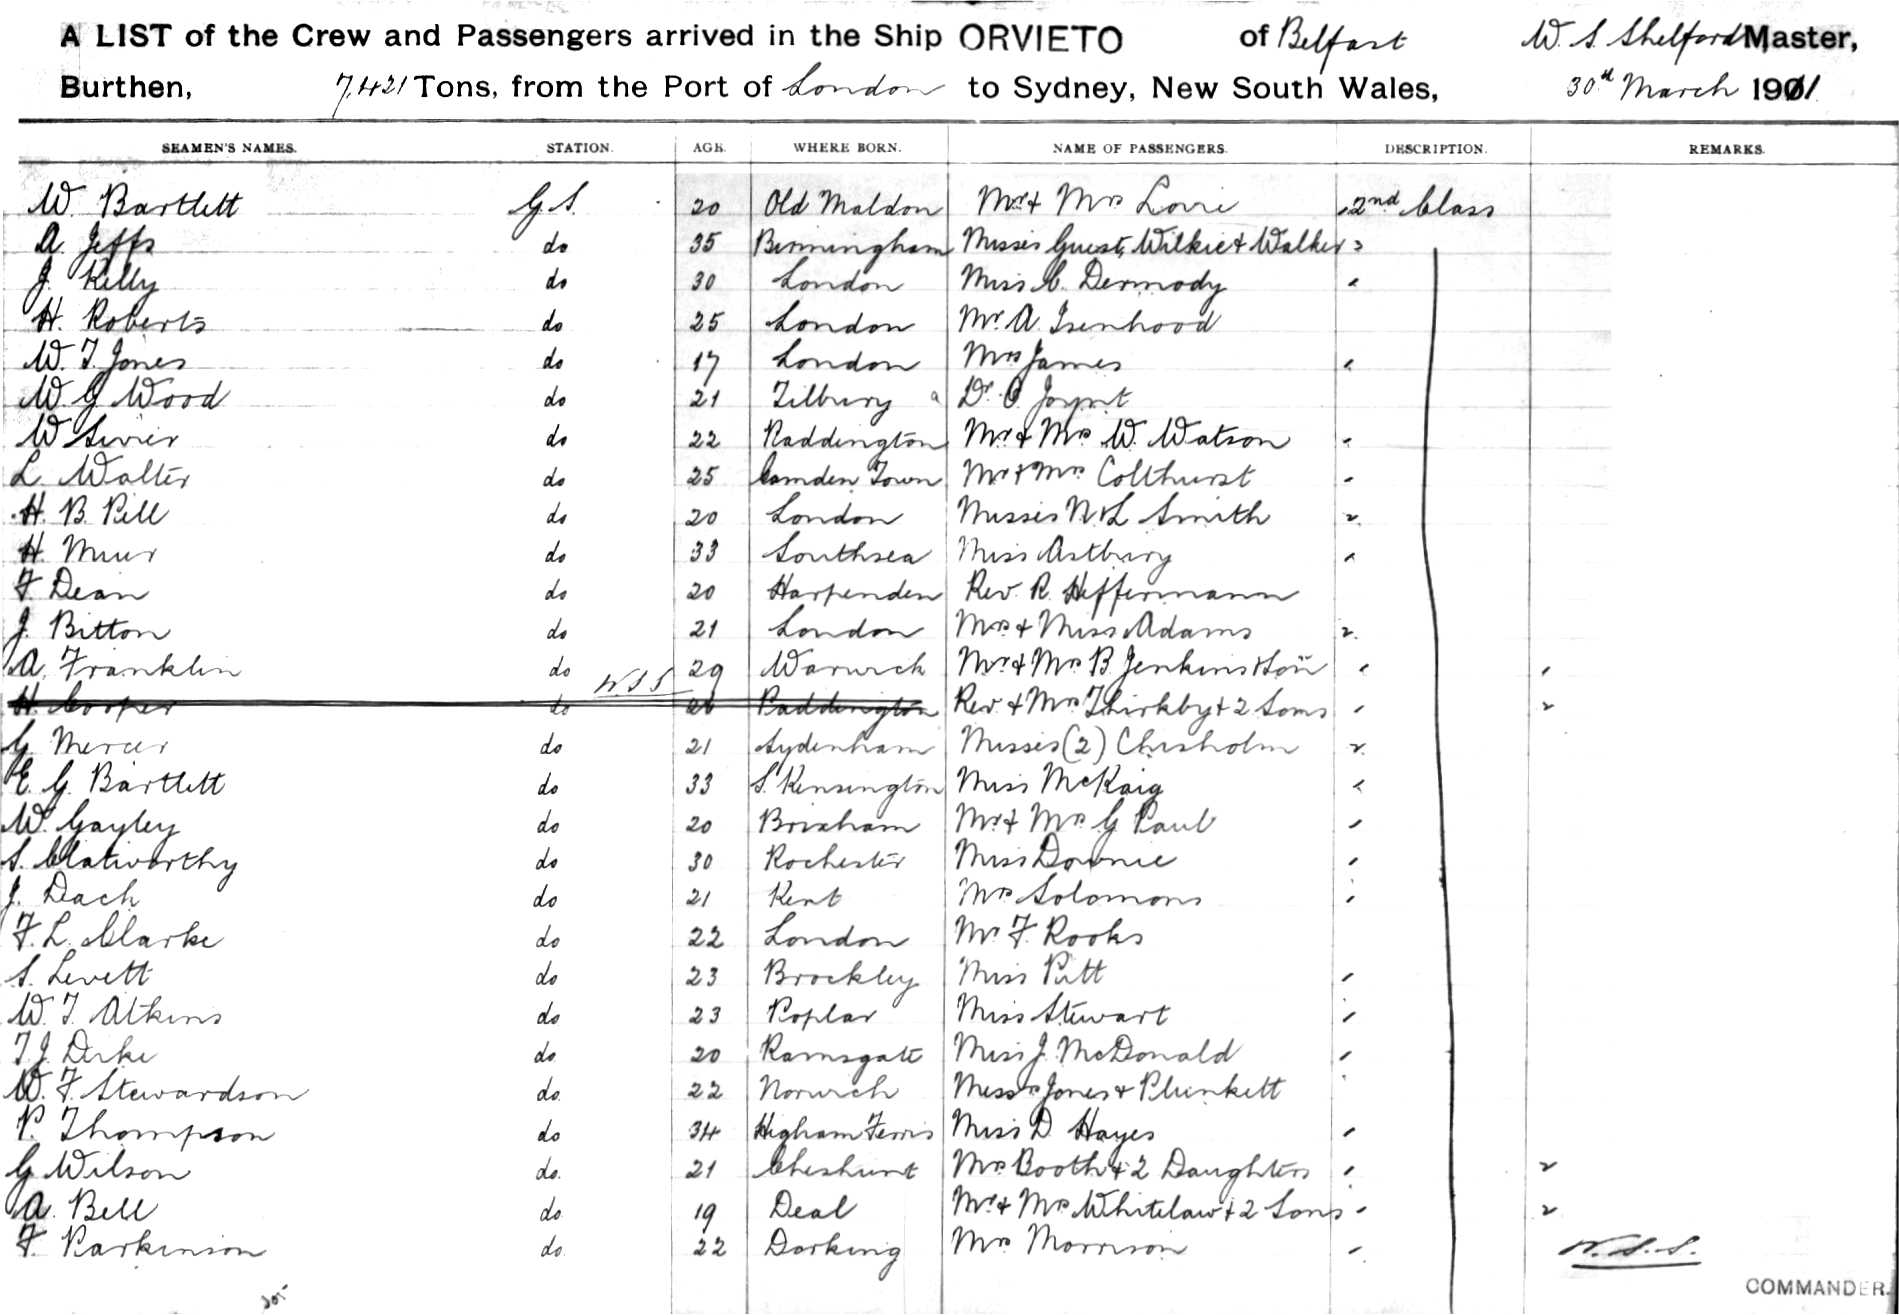 A LIST of the Crew and Passengers arrived in the Ship ORVIETO of Belfast W. S. Shelford Master,
Burthen, 7,421 Tons, from the Port of London to Sydney, New South Wales, 30th March 1911
SEAMEN'S NAMES. STATION. AGE. WHERE BORN. NAME OF PASSENGERS. DESCRIPTION. REMARKS.
W. Bartlett G.S. 20 Old Maldon Mr & Mrs Lovie 2nd Class
A. Jeffs do 35 Birmingham Misses Guest, Wilkie & Walker 3
J. Kelly do 30 London Miss C. Dermody
H. Roberts do 25 London Mr. A. Isenhood
W. T. Jones do 17 London Mrs James
W. G Wood do 21 Tilbury Dr. Joynt
W do 22 Paddington Mr & Mrs W. Watson
L. Walter do 25 Camden Town Mr & Mrs Colthurst
H. B. Pell do 20 London Misses N & L Smith 2
H. Muir do 33 Southsea Miss Astbury
F. Dean do 20 Harpenden Rev. R. Heffermann
J. Bitton do 21 London Mrs & Miss Adams 2.
A. Franklin do 29 Warwick Mr & Mrs B Jenkins & Son
H. Cooper do W.S.S Paddington Rev & Mrs Thirkby & 2 Sons 2
G. Mercer do 21 Sydenham Misses (2) Chisholm 2.
E. G. Bartlett do 33 S. Kensington Miss McKaig
W. Gayley do 20 Brixham Mr & Mrs G Paul
S. Clatworthy do 30 Rochester Miss Downie
J. Dach do 21 Kent Mrs Solomons
F. L. Clarke do 22 London Mr F. Rooks
S. Levett do 23 Brockley Miss Pitt
W. T. Atkins do 23 Poplar Miss Stewart
T. J. Dirke do 20 Ramsgate Miss J. McDonald
W. F. Stewardson do. 22 Norwich Messrs Jones & Plunkett
P. Thompson do 34 Higham Ferris Miss D Hayes
G Wilson do. 21 Cheshunt Mrs Booth & 2 Daughters 2
A. Bell do. 19 Deal Mr & Mrs Whitelaw & 2 Sons 2
F. Parkinson do. 22 Dorking Mrs Morrison W.S.S.
COMMANDER.